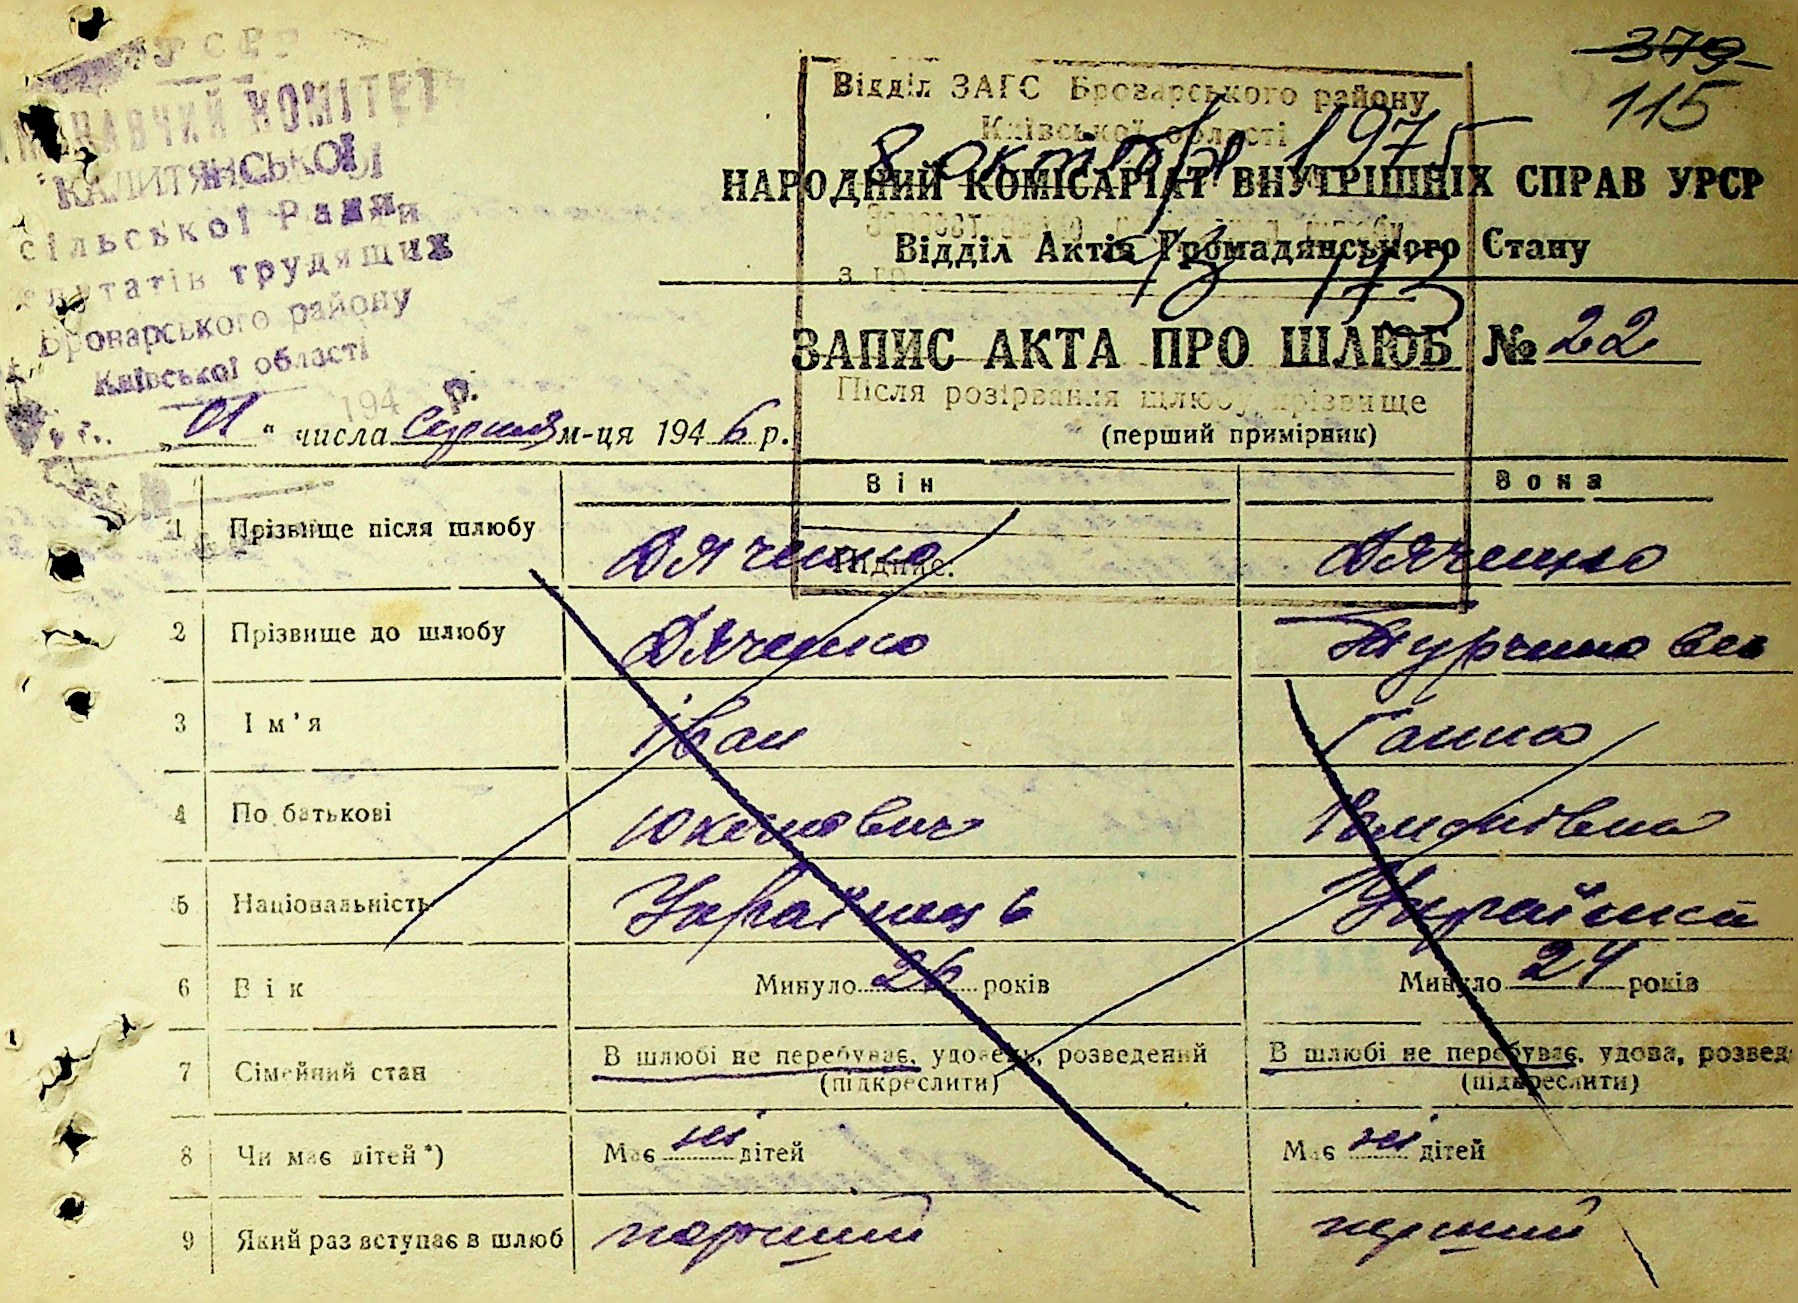 УРСР
КОМІТЕТ
КАЛИТЯНСЬКОЇ
сільської Ради
депутатів трудящих
Броварського району
Київської області
194 р.
379
115
Відділ ЗАГС Броварського району
Київської області
8 октября 1975
НАРОДНИЙ КОМІСАРІАТ ВНУТРІШНІХ СПРАВ УРСР
Відділ Актів Громадянського Стану
з гр.
173
ЗАПИС АКТА ПРО ШЛЮБ № 22
Після розірвання шлюбу прізвище
(перший примірник)
„01“ числа серпня м-ця 1946 р.
Він Вона
1 Прізвище після шлюбу Дяченко Дяченко
Підпис:
2 Прізвище до шлюбу Дяченко
3 Ім'я Іван Ганна
4 По батькові
5 Національність Українець Українка
6 Вік Минуло 26 років Минуло 24 років
7 Сімейний стан В шлюбі не перебуває, удовець, розведений В шлюбі не перебуває, удова, розвед
(підкреслити) (підкреслити)
8 Чи має дітей*) Має ні дітей Має ні дітей
9 Який раз вступає в шлюб перший перший